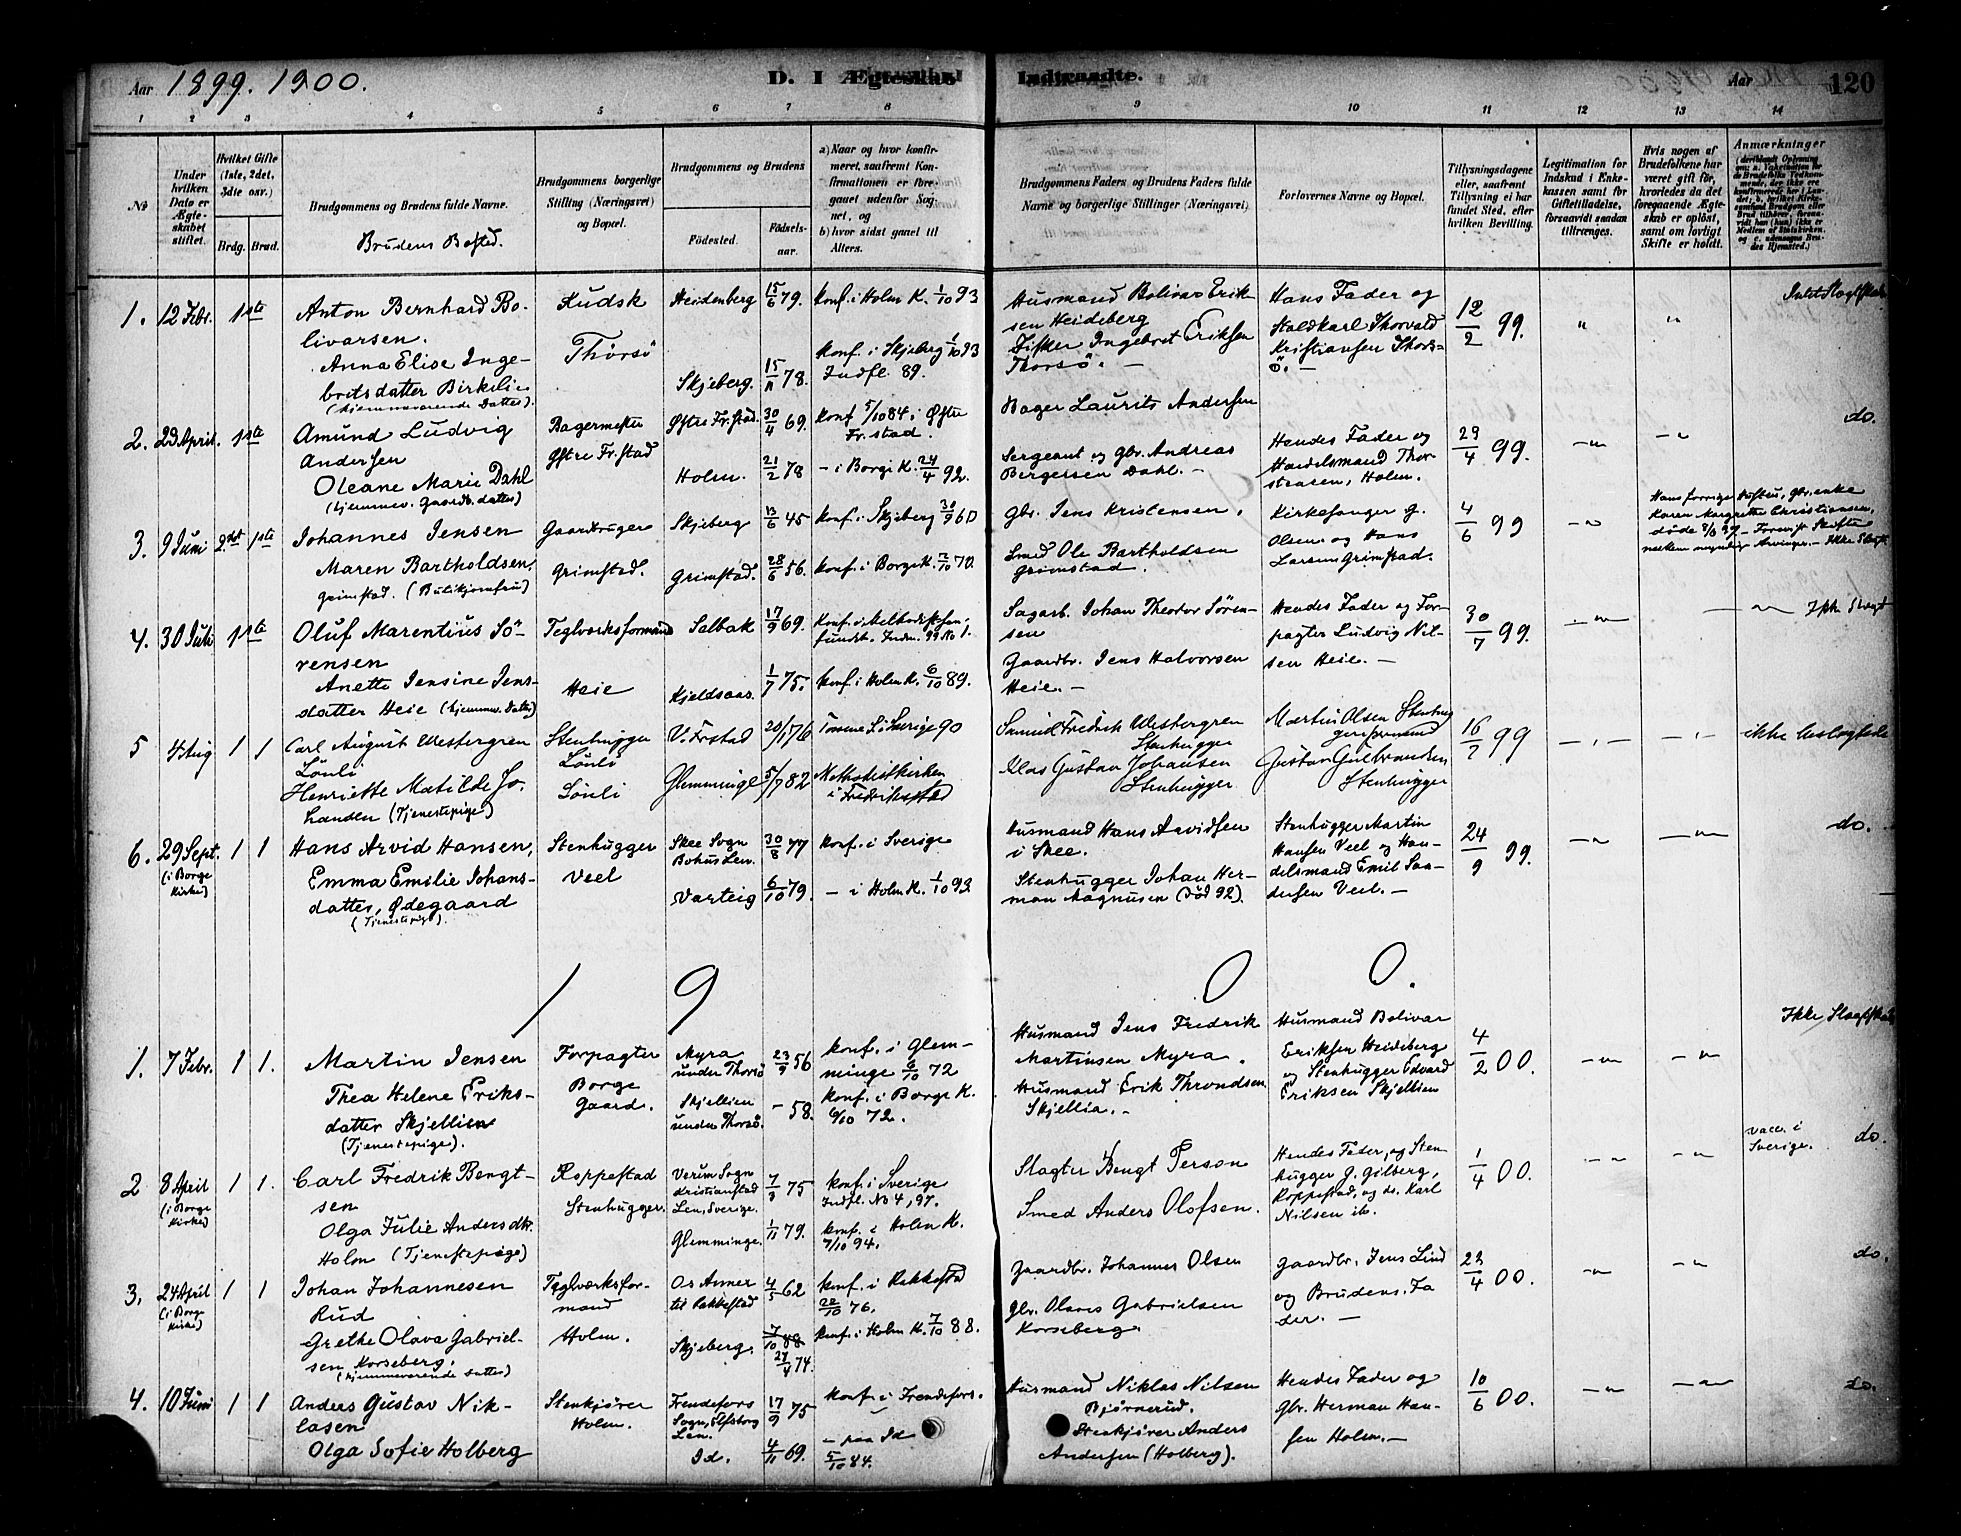 Aar 1899. 1900.
D. I Ægteskab
Indtraadte.
Aar
120
1 2 3 4 5 6 7 8 9 10 11 12 13 14
No
Under hvilken Dato er Ægteskabet stiftet.
Hvilket Gifte (1ste, 2det, 3die osv.)
Brdg. Brud.
Brudgommens og Brudens fulde Navne.
Brudens Bosted.
Brudgommens borgerlige Stilling (Næringsvei) og Bopæl.
Brudgommens og Brudens
Födested.
Födselsaar.
a) Naar og hvor konfirmeret, saafremt Konfirmationen er foregaaet udenfor Sognet, og
b) hvor sidst gaaet til Alters.
Brudgommens Faders og Brudens Faders fulde Navne og borgerlige Stillinger (Næringsvei)
Forlovernes Navne og Bopæl.
Tillysningsdagene eller, saafremt Tillysning ei har fundet Sted, efter hvilken Bevilling.
Legitimation for Indskud i Enkekassen samt for Giftetilladelse, forsaavidt saadan tiltrænges.
Hvis nogen af Brudefolkene har været gift för, hvorledes da det foregaaende Ægteskab er oplöst, samt om lovligt Skifte er holdt.
Anmærkninger
1. 12 Febr. 1ste
Anton Bernhard Bolivarsen.
Anna Elise Ingebretsdatter Birkelie
(hjemmeværende Datter).
Kudsk
Thorsö
Heidenberg 15/6 79. konf. i Holm K. 1/10 93
Skjeberg. 15/11 78. konf. i Skjeberg 1/10 93
Indfl. 89.
Husmand Bolivar Eriksen Heideberg
Fisker Ingebret Eriksen Thorsö. —
Hans Fader og Staldkarl Thorvald Kristiansen Thorsö. —
12/2 99. " "
2. 23 April. 1ste
Amund Ludvig Andersen
Oleane Marie Dahl
(hjemmev. Gaardb. datter)
Bagermester
Østre Fr.stad
Østre Fr.stad. 30/4 69. konf 5/10 84 i Østre Fr.stad.
Holm. 21/2 78 — i Borge K. 24/4 92.
Bager Laurits Andersen
Sergeant og gbr. Andreas Bergersen Dahl. —
Hendes Fader og Handelsmand Thorstensen, Holm.
29/4 99. —"— —"
do.
3. 9 Juni 2det 1ste
Johannes Jensen
Maren Bartholdsen, Grimstad. (Butikjomfru)
Gaardbruger
Grimstad.
Skjeberg 13/6 45 konf. i Skjeberg 30/9 60
Grimstad. 28/6 56. konf. i Borge K. 2/10 70.
Gbr. Jens Kristensen.
Smed Ole Bartholdsen Grimstad.
Kirkesanger G. Olsen og Hans Larsen Grimstad.
4/6 99 —"—
Hans forrige Hustru, gbr.enke Karen Margrethe Christiansen, døde
4. 30 Juli 1ste
Oluf Marentius Sörensen
Anette Jensine Jensdatter Heie (hjemmev. Datter)
Teglverksformand
Heie
Selbak 17/9 69.
Kjeldsaas. 1/7 75. konf. i Holm K. 6/10 89.
Sagarb. Johan Theodor Sörensen
Gaardbr. Jens Halvorsen Heie. —
Hendes Fader og Forpagter Ludvig Nilsen Heie. —
30/7 99. —"— —"— Ikke Slægt
5 4 Aug 1 1
Carl August Westergren
Lönli
Henriette Matilde Johansen (Tjenestepige)
Stenhugger
Lönli
Sönli
V. Frstad 20/1 76
Glemminge 5/7 82 Methodistkirken i Fredrikstad
Smed Fredrik Westergren
Stenhugger
Klas Gustav Johansen
Stenhugger
Martin Olsen Stenhuggerformand
Gustav Gulbrandsen
Stenhugger
16/7 99 —"— —"— ikke beslægtede
6. 29 Sept. (i Borge Kirke) 1 1
Hans Arvid Hansen,
Emma Emilie Johansdatter, Ødegaard
(Tjenestepige).
Stenhugger
Veel
Skee Sogn Bohus Len. 30/8 77 konf. i Sverige
Varteig 6/10 79. — i Holm K. 1/10 93.
Husmand Hans Arvidsen i Skee.
Stenhugger Johan Herman Magnusen (död 92).
Stenhugger Martin Hansen Veel og Handelsmand Emil Andersen Veel. —
24/9 99. —"— —"— do.
1900.
1. 7 Febr. 1 1.
Martin Jensen
Thea Helene Eriksdatter Skjellien
(Tjenestepige).
Forpagter
Borge Gaard.
Myra under Thorsö 23/9 56 konf. i Glemminge 6/10 72
Skjellien under Thorsö. — 58. konf. i Borge K. 6/10 72.
Husmand Jens Fredrik Martinsen Myra.
Husmand Erik Throndsen Skjellia. —
Husmand Bolivar Eriksen Heideberg og Stenhugger Edvard Eriksen Skjellien
4/2 00. —"— —"—
Ikke Slægtskab
2 8 April (i Borge Kirke) 1 1.
Carl Fredrik Bengtsen
Olga Julie Andersdtr. Holm (Tjenestepige)
Roppestad
Stenhugger.
Verum Sogn Kristianstad Len, Sverige. 7/3 75 konf. i Sverige Indfl. No 4, 97.
Glemminge. 1/11 79. konf. i Holm K. 7/10 94.
Slagter Bengt Person
Smed Anders Olofsen.
Hendes Fader, og Stenhugger G. Gilberg, Roppestad, og do. Karl Nilsen ib.
1/4 00. —"— —"—
vacc. i Sverige. do.
3. 24 April (i Borge Kirke) 1 1
Johan Johannesen Rud
Grethe Olava Gabrielsen Korseberg.
(hjemmeværende datter)
Teglverksformand
Holm.
Os Anner til Rakkestad 4/5 62 konf. i Rakkestad 22/10 76.
Skjeberg. 7/10 88 27/4 74. konf. i Holm K. 7/10 88.
Gaardbr. Johannes Olsen
Gbr. Olaves Gabrielsen Korseberg.
Gaardbr. Jens Lind og Brudens Fader. —
23/4 00. —"— —"— do.
4. 10 Juni 1 1
Anders Gustav Niklasen
Olga Sofie Holberg
Stenkjører
Holm.
Frendefors Sogn, Elfsborg Len. 17/9 75 konf. i Frendefors.
Id. 4/11 69. — paa Id 5/10 84.
Husmand Niklas Nilsen Björnerud.
Stenkjører Anders Andersen (Holberg).
Hendes Fader og Gbr. Herman Hansen Holm. —
10/6 00. —"— —"— do.